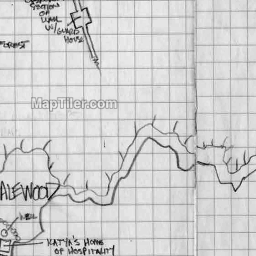 STATION
ON
WALL
W/GUARD
HOUSE
FOREST
MapTiler.com
ALEWOOD
WELL
KATYA'S HOME
OF HOSPITALITY